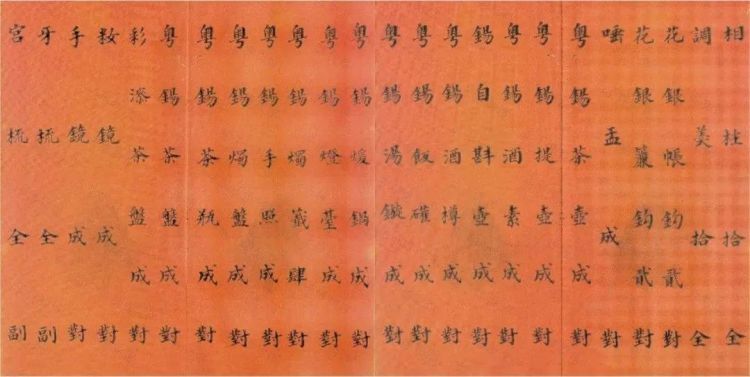 相拄拾全
調美拾全
花銀帳鈎貳對
花銀簾鈎貳對
唾盂成對
粤錫茶壺成對
粤錫提壺成對
粤錫酒素成對
錫自斟壺成對
粤錫酒樽成對
粤錫飯礶成對
粤錫湯鏇成對
粤錫煖鍋成對
粤錫燈臺成對
粤錫燭籤肆對
粤錫手照成對
粤錫燭盤成對
粤錫茶瓶成對
粤錫茶盤成對
彩漆茶盤成對
籹鏡成對
手鏡成對
牙梳全副
宮梳全副